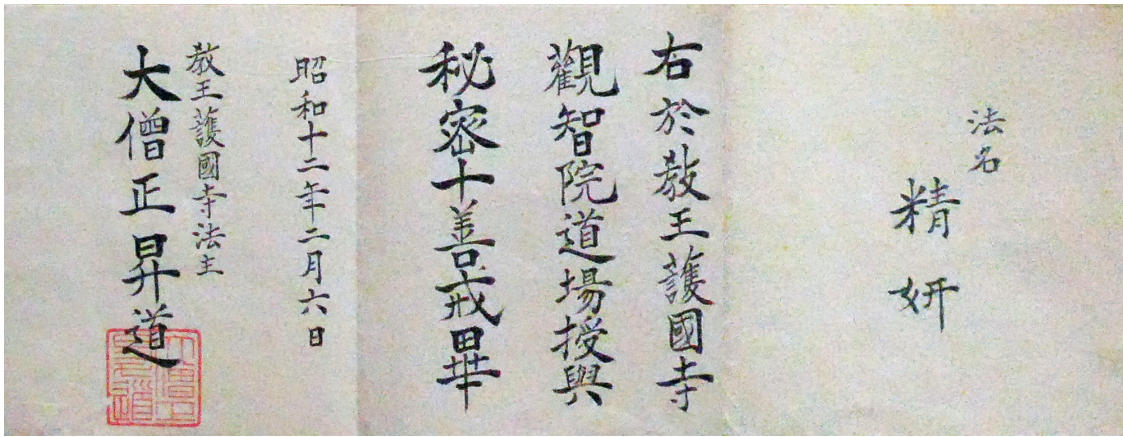 法名
精妍
右於教王護國寺
觀智院道場授與
秘密十善戒畢
昭和十二年二月六日
教王護國寺法主
大僧正昇道